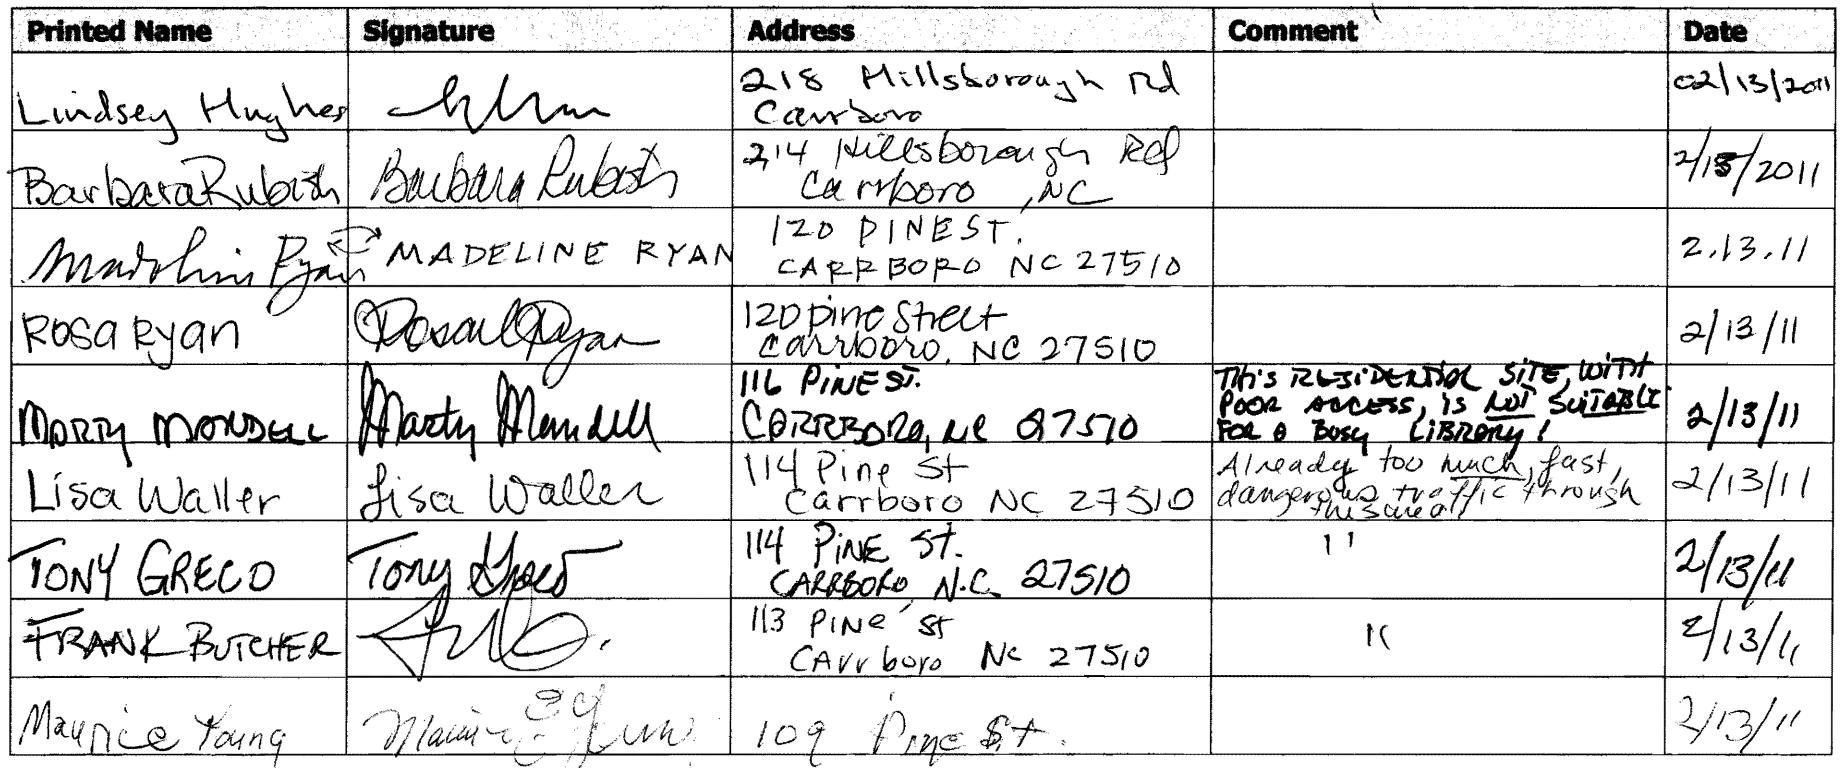 Printed Name Signature Address Comment Date
Lindsey Hughes 218 Hillsborough Rd 02/13/2011
Carrboro
Barbara Rubish Barbara Rubish 214 Hillsborough Rd 2/13/2011
Carrboro, NC
Madeline Ryan MADELINE RYAN 120 PINE ST. 2.13.11
CARRBORO NC 27510
Rosa Ryan Rosa Ryan 120 pine Street 2/13/11
Carrboro, NC 27510
MARTY MANDELL Marty Mandell 116 PINE ST. 2/13/11
CARRBORO, NC 27510
THIS RESIDENTIAL SITE, WITH
POOR ACCESS, IS NOT SUITABLE
FOR A BUSY LIBRARY!
Lisa Waller Lisa Waller 114 Pine St 2/13/11
Carrboro NC 27510
Already too much, fast,
dangerous traffic through
this area!
TONY GRECO Tony Greco 114 PINE St. " 2/13/11
CARRBORO N.C. 27510
FRANK BUTCHER 113 PINE St " 2/13/11
CArrboro NC 27510
Maurice Young 109 Pine St. 2/13/11